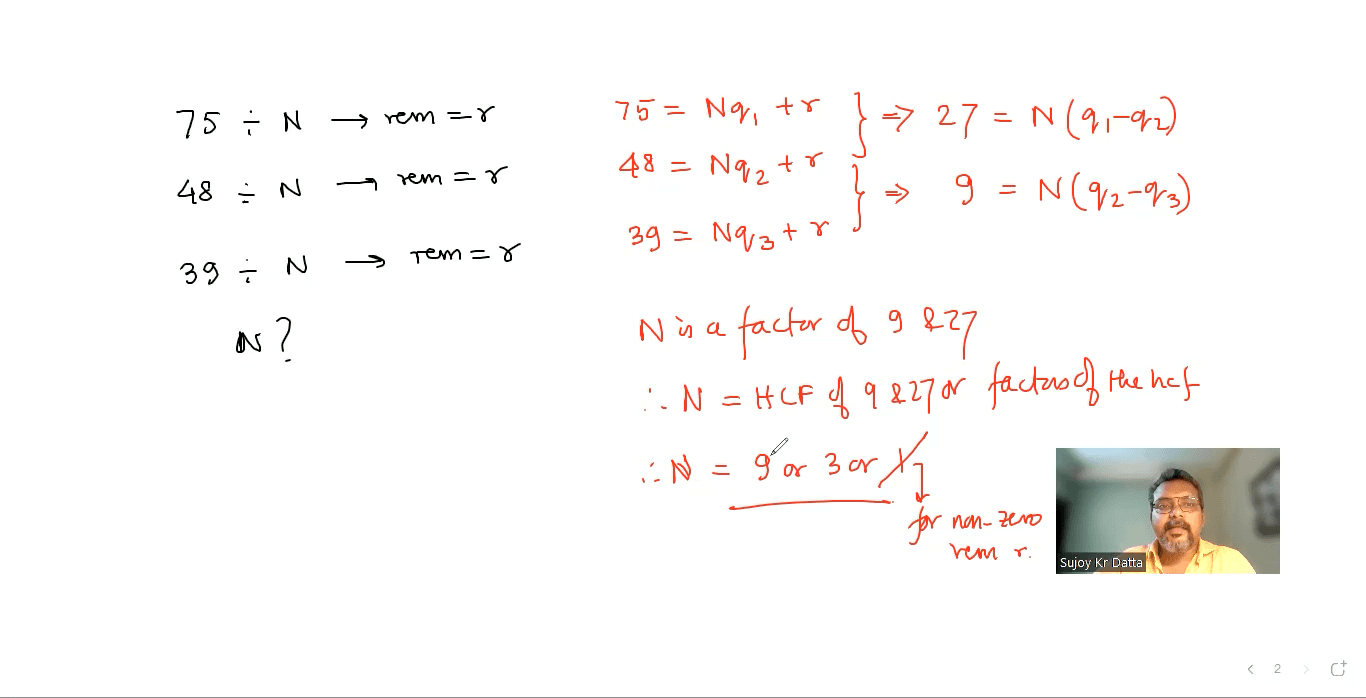 75 ÷ N → rem = r
48 ÷ N → rem = r
39 ÷ N → rem = r
N ?
75 = Nq₁ + r
48 = Nq₂ + r
39 = Nq₃ + r
} ⇒ 27 = N(q₁-q₂)
} ⇒ 9 = N(q₂-q₃)
N is a factor of 9 & 27
∴ N = HCF of 9 & 27 or factors of the hcf
∴ N = 9 or 3 or 1
for non-zero
rem r.
Sujoy Kr Datta
2